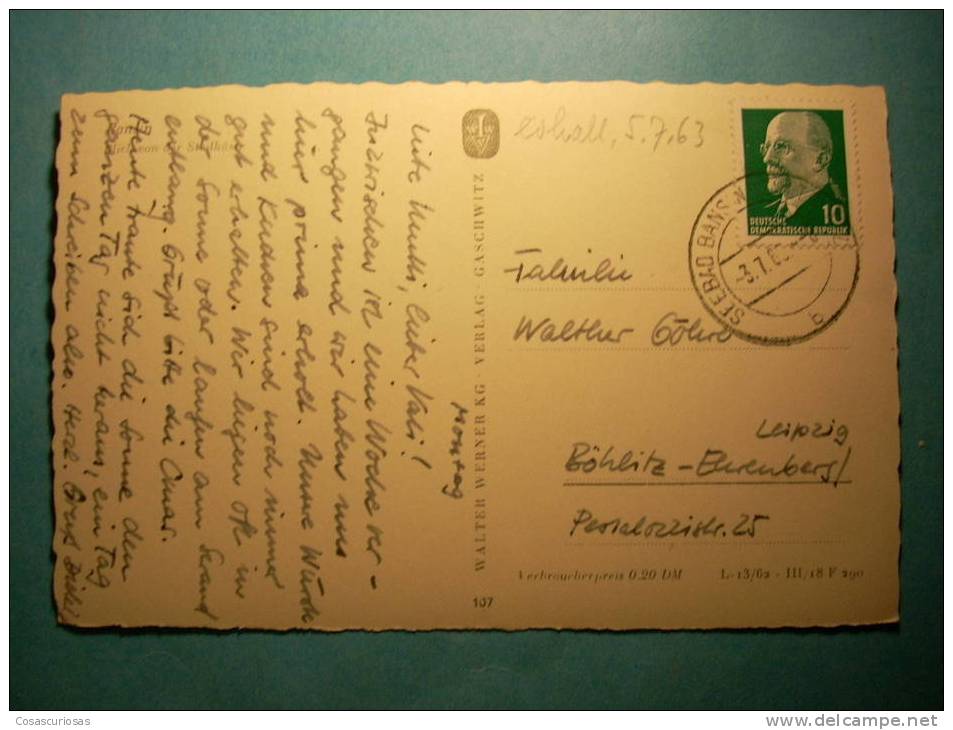 Montag
Liebe Mutti, lieber Vati!
Inzwischen ist eine Woche ver-
gangen und wir haben uns
hier prima erholt. Unsere Würde
und Kudien sind noch immer
gut erhalten. Wir liegen oft in
der Sonne oder laufen am Strand
entlang. Grüßt bitte die Omas.
Heute traute sich die Sonne den
ganzen Tag nicht heraus, ein Tag
zum Schreiben also. Herzl. Gruß
WALTER WERNER KG · VERLAG · GASCHWITZ
107
erhalt. 5.7.63
DEUTSCHE
DEMOKRATISCHE REPUBLIK
10
SEEBAD BANSIN
-3.7.63
a
Familie
Walther Göhre
Leipzig
Böhlitz-Ehrenberg/
Pestalozzistr. 25
Verbraucherpreis 0.20 DM L-13/62 - III/18 F 290
Cosascuriosas
www.delcampe.net